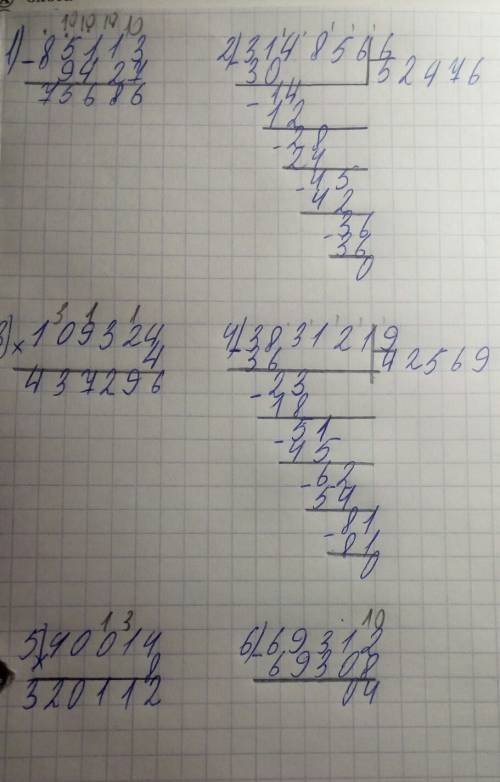 10 10 10 10
1) - 85113
9427
75686
2) - 314856 6
30 52476
- 14
12
- 28
24
- 45
42
- 36
36
0
3 1 1
3) × 109324
4
437296
4) - 383121 9
36 42569
- 23
18
- 51
45
- 62
54
- 81
81
0
1 3
5) × 40014
8
320112
10
6) - 69312
69308
04